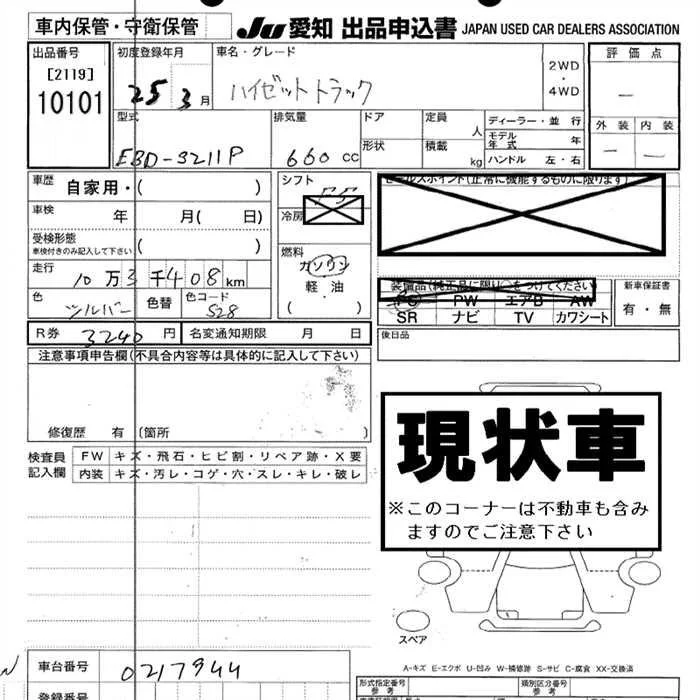 車内保管・守衛保管
JU 愛知 出品申込書 JAPAN USED CAR DEALERS ASSOCIATION
出品番号
[2119]
10101
初度登録年月
25 3月
車名・グレード
ハイゼットトラック
2WD
・
4WD
評価点
―
外装 内装
― ―
型式
EBD-S211P
排気量
660 cc
ドア
形状
定員 人
積載 kg
ディーラー・並行
モデル年式 年
ハンドル 左・右
車歴 自家用・( )
車検 年 月( 日)
受検形態
車検付きのみ記入して下さい ( )
走行 10万3千408km
色 シルバー 色替 色コード S28
シフト
F5
冷房
燃料
ガソリン
軽・油
( )
セールスポイント(正常に機能するものに限ります)
装備品(純正品に限り○をつけてください)
PS PW エアB AW
SR ナビ TV カワシート
新車保証書
有・無
R券 3240円 名変通知期限 月 日
後日品
注意事項申告欄(不具合内容等は具体的に記入して下さい)
修復歴 有 (箇所 )
検査員記入欄
FW キズ・飛石・ヒビ割・リペア跡・X要
内装 キズ・汚レ・コゲ・穴・スレ・キレ・破レ
現状車
※このコーナーは不動車も含み
ますのでご注意下さい
スペア
A-キズ E-エクボ U-凹み W-補修跡 S-サビ C-腐食 XX-交換済
車台番号 0217944
登録番号
形式指定番号
参考
類別区分番号
参考